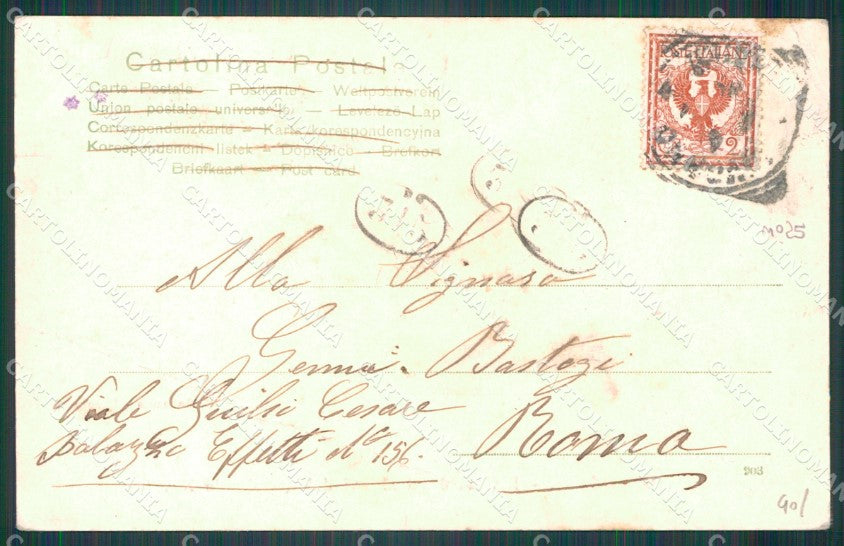 Cartolina Postale
Carte Postale — Postkarte — Weltpostverein
Union postale universelle — Levelező Lap
Correspondenzkarte — Karta korespondencyjna
Korespondencni listek — Dopisnice — Brefkort
Briefkaart — Post card
POSTE ITALIANE
2
N° 25
Alla Signora
Gemma Bastogi
Viale Giulio Cesare
Palazzo Effetti N° 156. Roma
903
40/
CARTOLINOMANIA